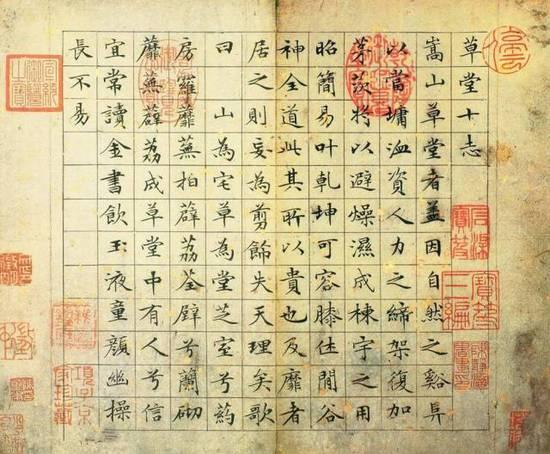 草堂十志
嵩山草堂者蓋因自然之谿阜
以當墉洫資人力之締架復加
茅茨將以避燥濕成棟宇之用
昭簡易叶乾坤可容膝休閒谷
神全道此其所以貴也及靡者
居之則妄為剪飾失天理矣歌
曰 山為宅草為堂芝室兮葯
房羅蘼蕪拍薜荔荃壁兮蘭砌
蘼蕪薜荔成草堂中有人兮信
宜常讀金書飲玉液童顏幽操
長不易
石渠寶笈
寶笈三編
項子京家珍藏